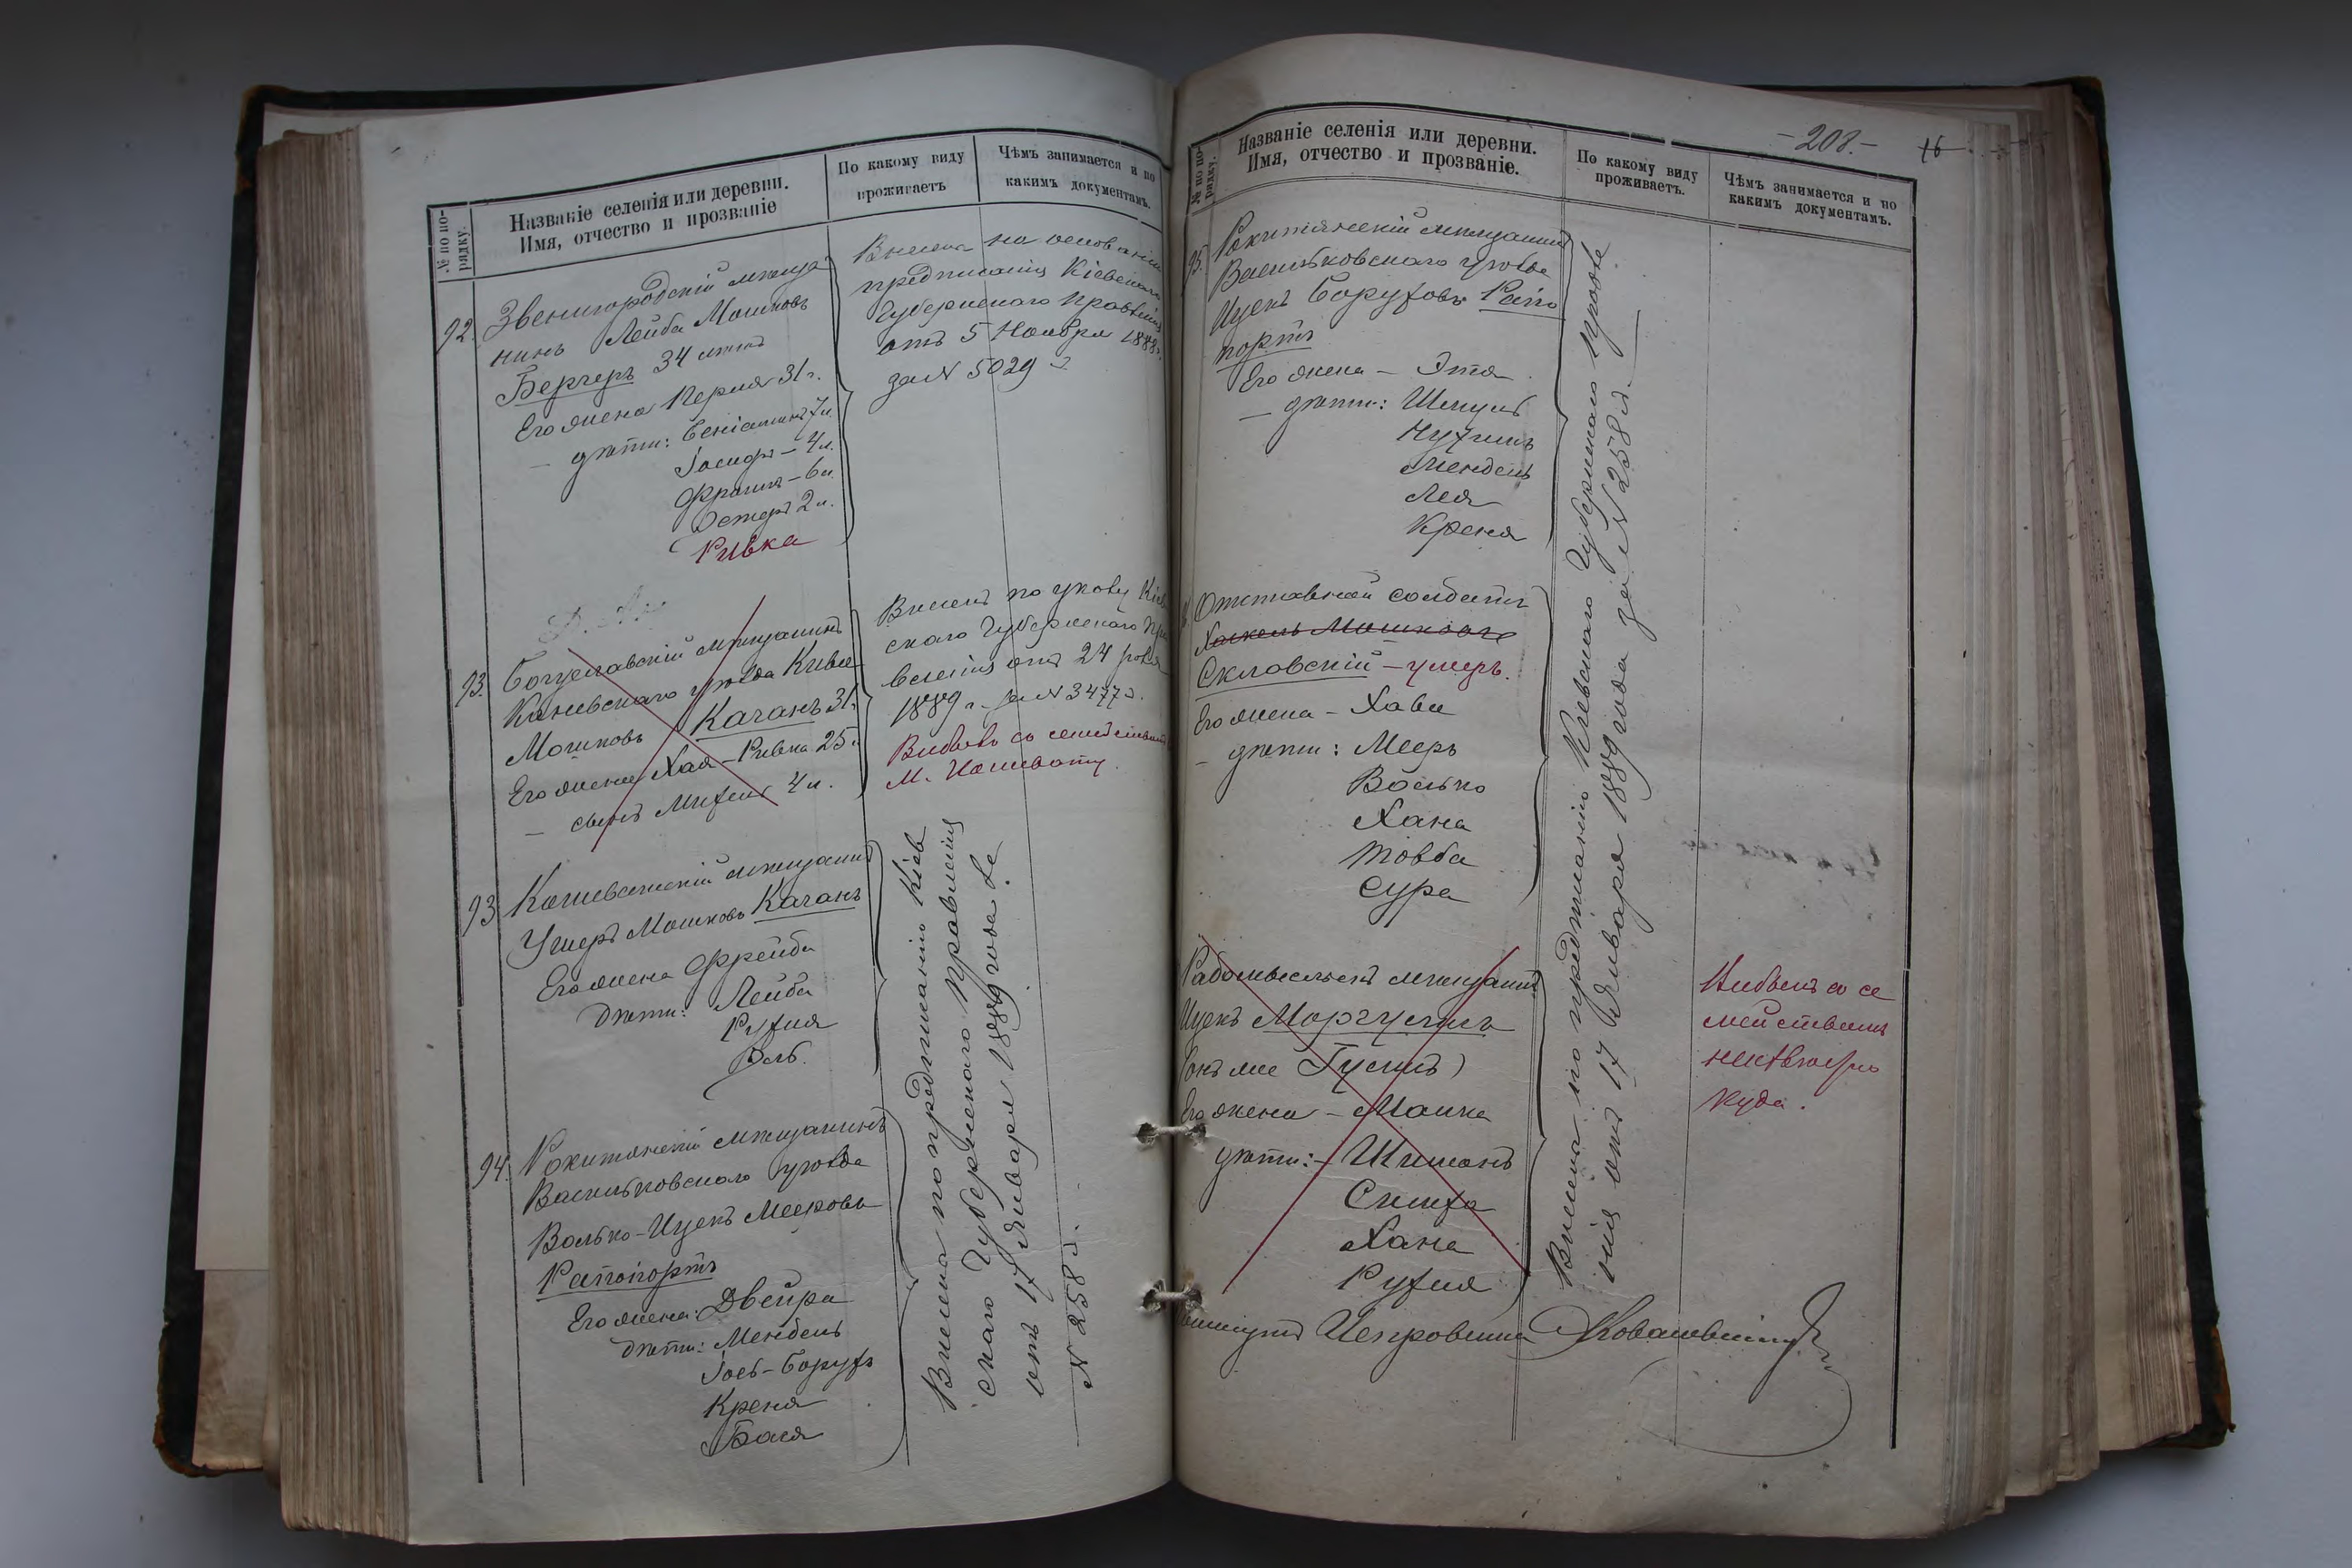 № по по-
рядку.
Названіе селенія или деревни.
Имя, отчество и прозваніе
По какому виду
проживаетъ
Чѣмъ занимается и по
какимъ документамъ.
92. Звенигородскій мѣща
нинъ Лейба Мошковъ
Бергеръ 34 лѣтъ
Его жена Перля 31 г.
— дѣти: Беніаминъ 7 л.
Іосифъ — 4 л.
Фраима — 6 л.
Эстеръ 2 л.
Ривка
Внесена на основаніи
предписанія Кіевскаго
Губернскаго Правленія
отъ 5 Ноября 1888 г.
за № 5029
93. Богуславскій мѣщанинъ
Каневскаго уѣзда Кива
Мошковъ Каганъ 31 г.
Его жена Хая-Ривка 25 л.
— сынъ Михель 4 л.
Внесенъ по указу Кіев
скаго Губернскаго Пра
вленія отъ 24
1889 г. за № 3477.
Выбылъ со семействомъ
м. Кошевату
93 Кошеватскій мѣщанинъ
Ушеръ Мошковъ Каганъ
Его жена Фрейда
Дѣти: Лейба
Рухля
94. Рокитянскій мѣщанинъ
Васильковскаго уѣзда
Волько-Ицекъ Мееровъ
Рапопортъ
Его жена: Двейра
Дѣти: Мендель
Іось-Борухъ
Креня
Бася
Внесена по предписанію Кіев
скаго Губернскаго Правленія
отъ 17 Января 1889 года за
№ 258.
— 208. —
16
№ по по-
рядку.
Названіе селенія или деревни.
Имя, отчество и прозваніе.
По какому виду
проживаетъ.
Чѣмъ занимается и по
какимъ документамъ.
95. Рокитянскій мѣщанинъ
Васильковскаго уѣзда
Ицекъ Боруховъ Рапо
портъ
Его жена — Этя
— дѣти: Шмуль
Нухимъ
Мендель
Лея
Креня
Отставной солдатъ
Хаскель Мошковъ
Скловскій — умеръ.
Его жена — Хава
— дѣти: Мееръ
Волько
Хана
Товба
Сура
Радомысльскъ мѣщанинъ
Ицекъ Моргулисъ
(онъ же Гусинъ)
Его жена — Малка
дѣти: — Шимонъ
Симха
Хана
Рухля
Внесена по предписанію Кіевскаго Губернскаго Правле
нія отъ 17 Января 1889 года за № 258.
Выбылъ со се
мействомъ
неизвѣстно
куда.
Ковалевскій